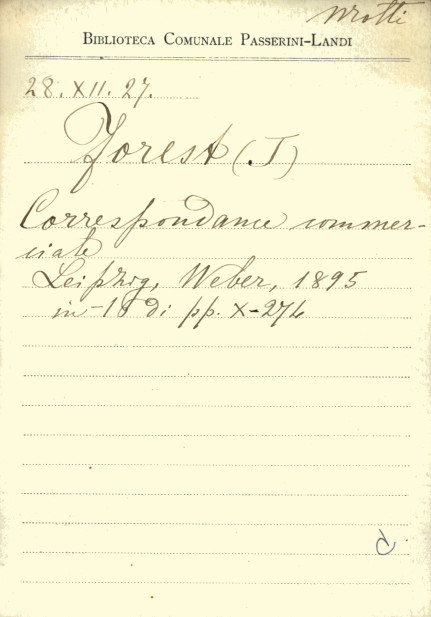 Motti
BIBLIOTECA COMUNALE PASSERINI-LANDI
28. XII. 27.
Forest (J)
Correspondance commer-
ciale
Leipzig, Weber, 1895
in-16 di pp. X-274
C.